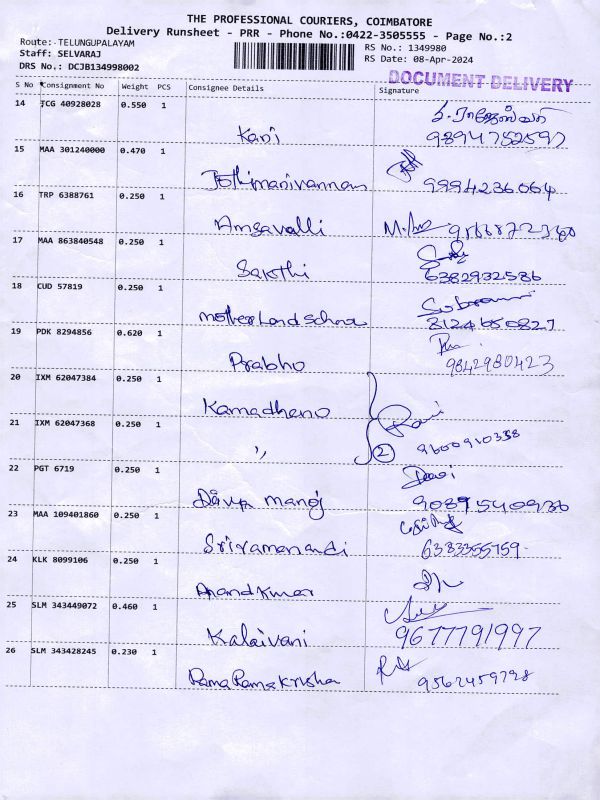 THE PROFESSIONAL COURIERS, COIMBATORE
Delivery Runsheet - PRR - Phone No.:0422-3505555 - Page No.:2
Route:- TELUNGUPALAYAM
RS No.: 1349980
Staff: SELVARAJ
RS Date: 08-Apr-2024
DRS No.: DCJB134998002
DOCUMENT DELIVERY
S No Consignment No Weight PCS Consignee Details Signature
14 TCG 40928028 0.550 1
Kani 9894752597
15 MAA 301240000 0.470 1
Jothimanivannan 9994236064
16 TRP 6388761 0.250 1
Amsavalli
17 MAA 863840548 0.250 1
Sakthi 6382932586
18 CUD 57819 0.250 1
8124650827
19 PDK 8294856 0.620 1
Prabho 9842980423
20 IXM 62047384 0.250 1
Kamadheno
21 IXM 62047368 0.250 1
,, 2 9600910338
22 PGT 6719 0.250 1
Manoj
23 MAA 109401860 0.250 1
6383355759
24 KLK 8099106 0.250 1
Anandkumar
25 SLM 343449072 0.460 1
Kalaivani 9677791997
26 SLM 343428245 0.230 1
Rama Ramakrisha 9562459798